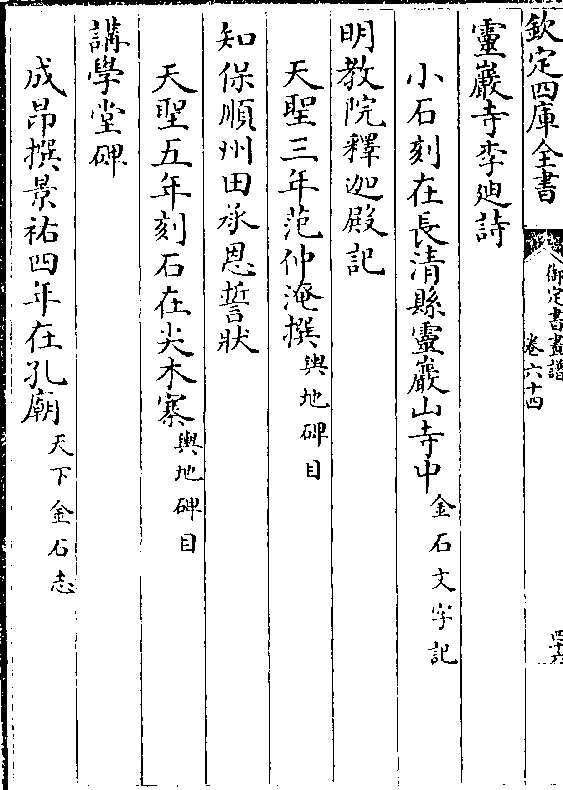 欽定四庫全書
御定書畫譜
卷六十四
靈巖寺李迪詩
小石刻在長清縣靈巖山寺中金石文字記
明教院釋迦殿記
天聖三年范仲淹撰輿地碑目
知保順州田承恩誓狀
天聖五年刻石在尖木寨輿地碑目
講學堂碑
成昂撰景祐四年在孔廟天下金石志